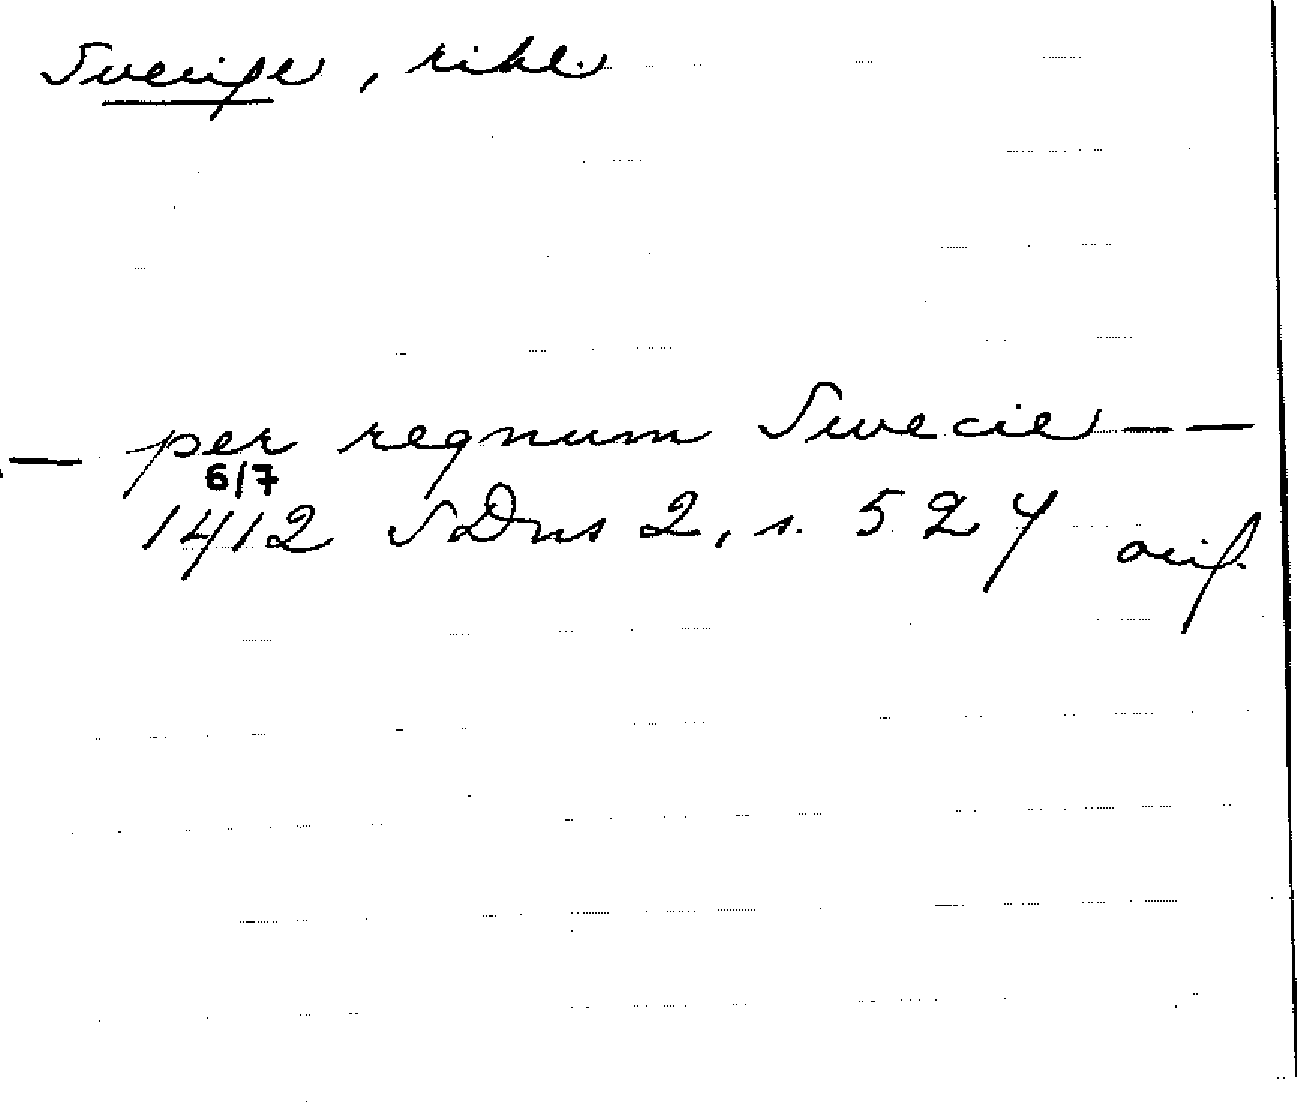 Sverige, rike
— per regnum Swecie — —
6/7
1412 SDns 2, s. 527 orig.